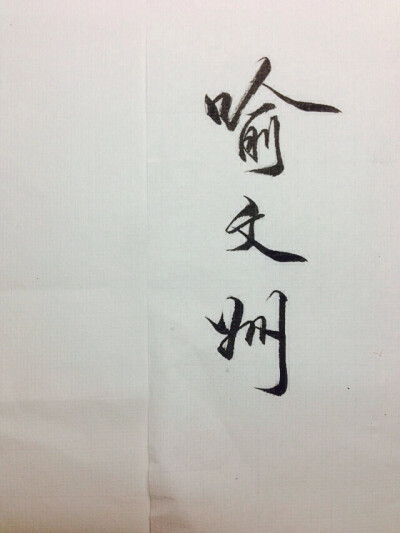 喻文州